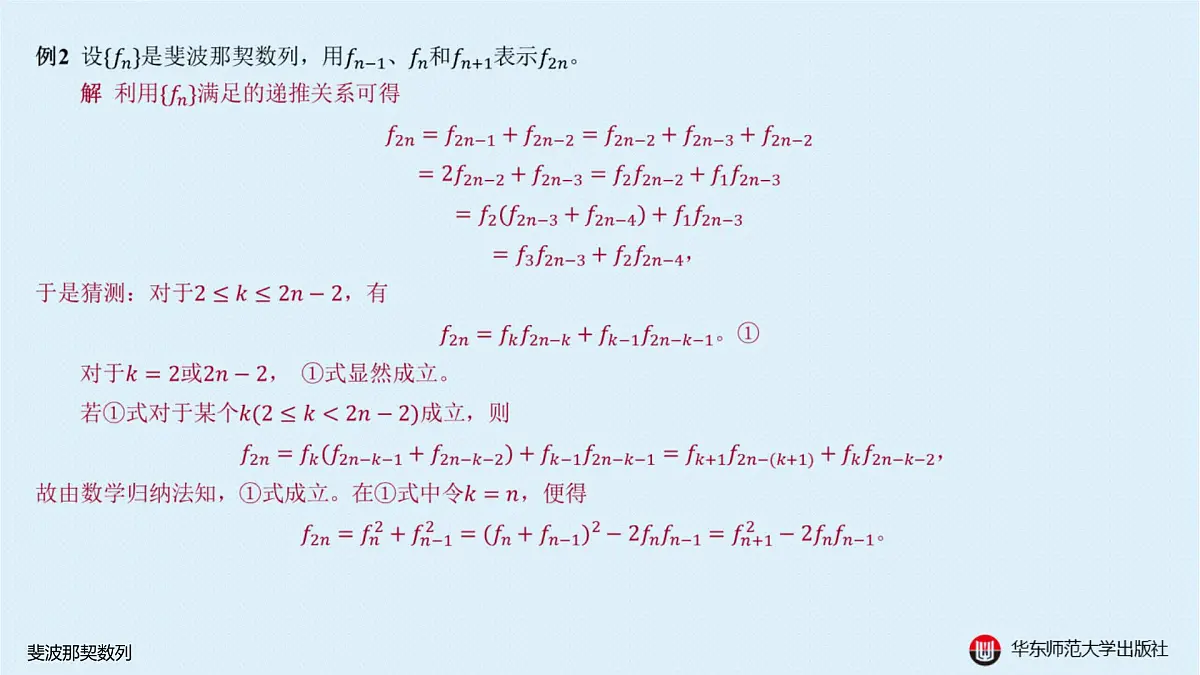 例2 设{fₙ}是斐波那契数列，用fₙ₋₁、fₙ和fₙ₊₁表示f₂ₙ。
解 利用{fₙ}满足的递推关系可得
f₂ₙ = f₂ₙ₋₁ + f₂ₙ₋₂ = f₂ₙ₋₂ + f₂ₙ₋₃ + f₂ₙ₋₂
= 2f₂ₙ₋₂ + f₂ₙ₋₃ = f₂f₂ₙ₋₂ + f₁f₂ₙ₋₃
= f₂(f₂ₙ₋₃ + f₂ₙ₋₄) + f₁f₂ₙ₋₃
= f₃f₂ₙ₋₃ + f₂f₂ₙ₋₄，
于是猜测：对于2 ≤ k ≤ 2n − 2，有
f₂ₙ = fₖf₂ₙ₋ₖ + fₖ₋₁f₂ₙ₋ₖ₋₁。①
对于k = 2或2n − 2， ①式显然成立。
若①式对于某个k(2 ≤ k < 2n − 2)成立，则
f₂ₙ = fₖ(f₂ₙ₋ₖ₋₁ + f₂ₙ₋ₖ₋₂) + fₖ₋₁f₂ₙ₋ₖ₋₁ = fₖ₊₁f₂ₙ₋₍ₖ₊₁₎ + fₖf₂ₙ₋ₖ₋₂，
故由数学归纳法知，①式成立。在①式中令k = n，便得
f₂ₙ = fₙ² + fₙ₋₁² = (fₙ + fₙ₋₁)² − 2fₙfₙ₋₁ = fₙ₊₁² − 2fₙfₙ₋₁。
斐波那契数列
华东师范大学出版社